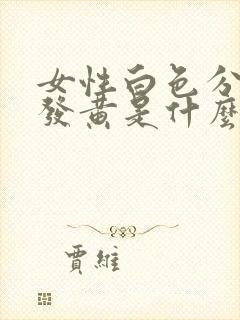 女性白色分
發黃是什麼
賈維